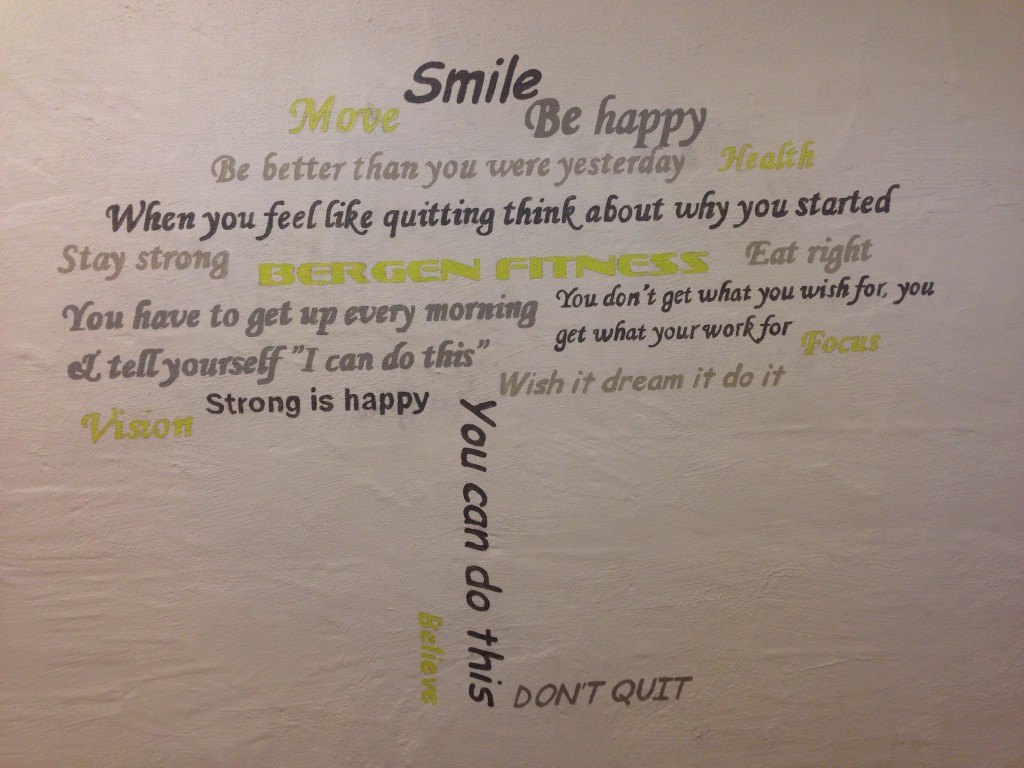 Smile
Move
Be happy
Be better than you were yesterday
Health
When you feel like quitting think about why you started
Stay strong
BERGEN FITNESS
Eat right
You have to get up every morning
& tell yourself "I can do this"
You don't get what you wish for, you
get what your work for
Focus
Wish it dream it do it
Strong is happy
Vision
You can do this
Believe
DON'T QUIT